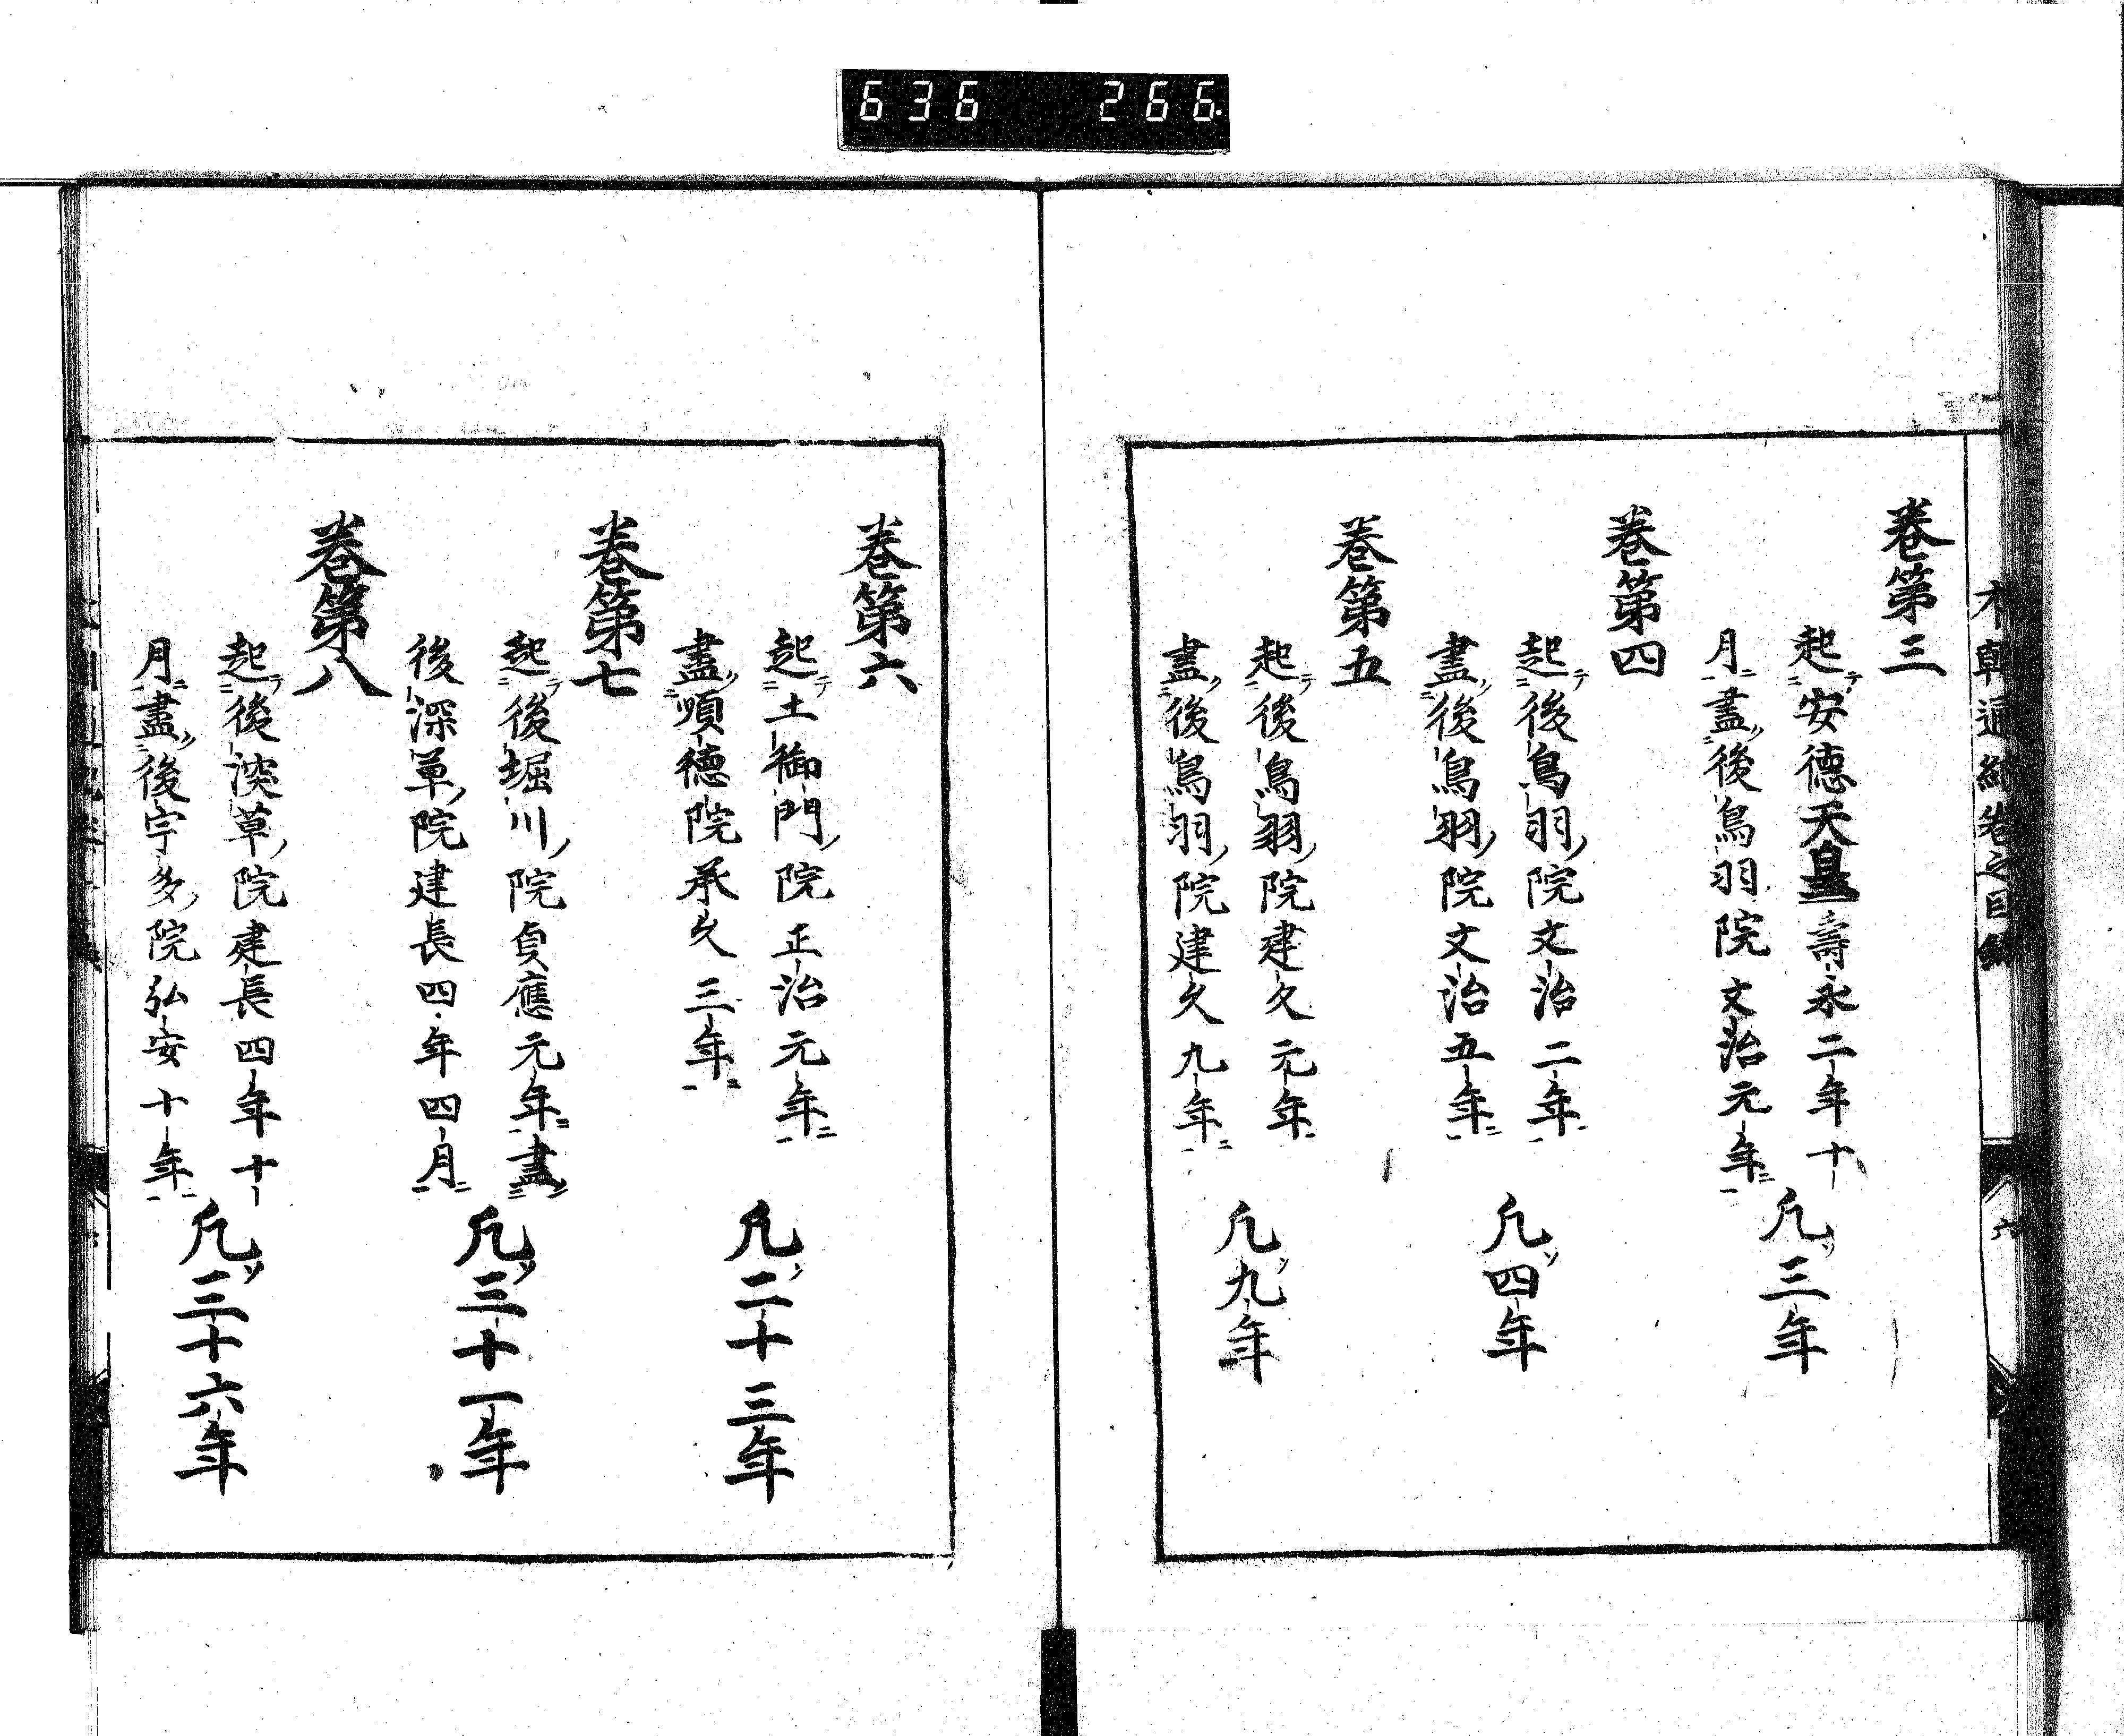 636 266
本朝通紀卷之目錄
六
卷第三
起安德天皇壽永二年十
月盡後鳥羽院文治元年
凢三年
卷第四
起後鳥羽院文治二年
盡後鳥羽院文治五年
凢四年
卷第五
起後鳥羽院建久元年
盡後鳥羽院建久九年
凢九年
卷第六
起土御門院正治元年
盡順德院承久三年
凢二十三年
卷第七
起後堀川院貞應元年盡
後深草院建長四年四月
凢三十一年
卷第八
起後深草院建長四年十
月盡後宇多院弘安十年
凢三十六年